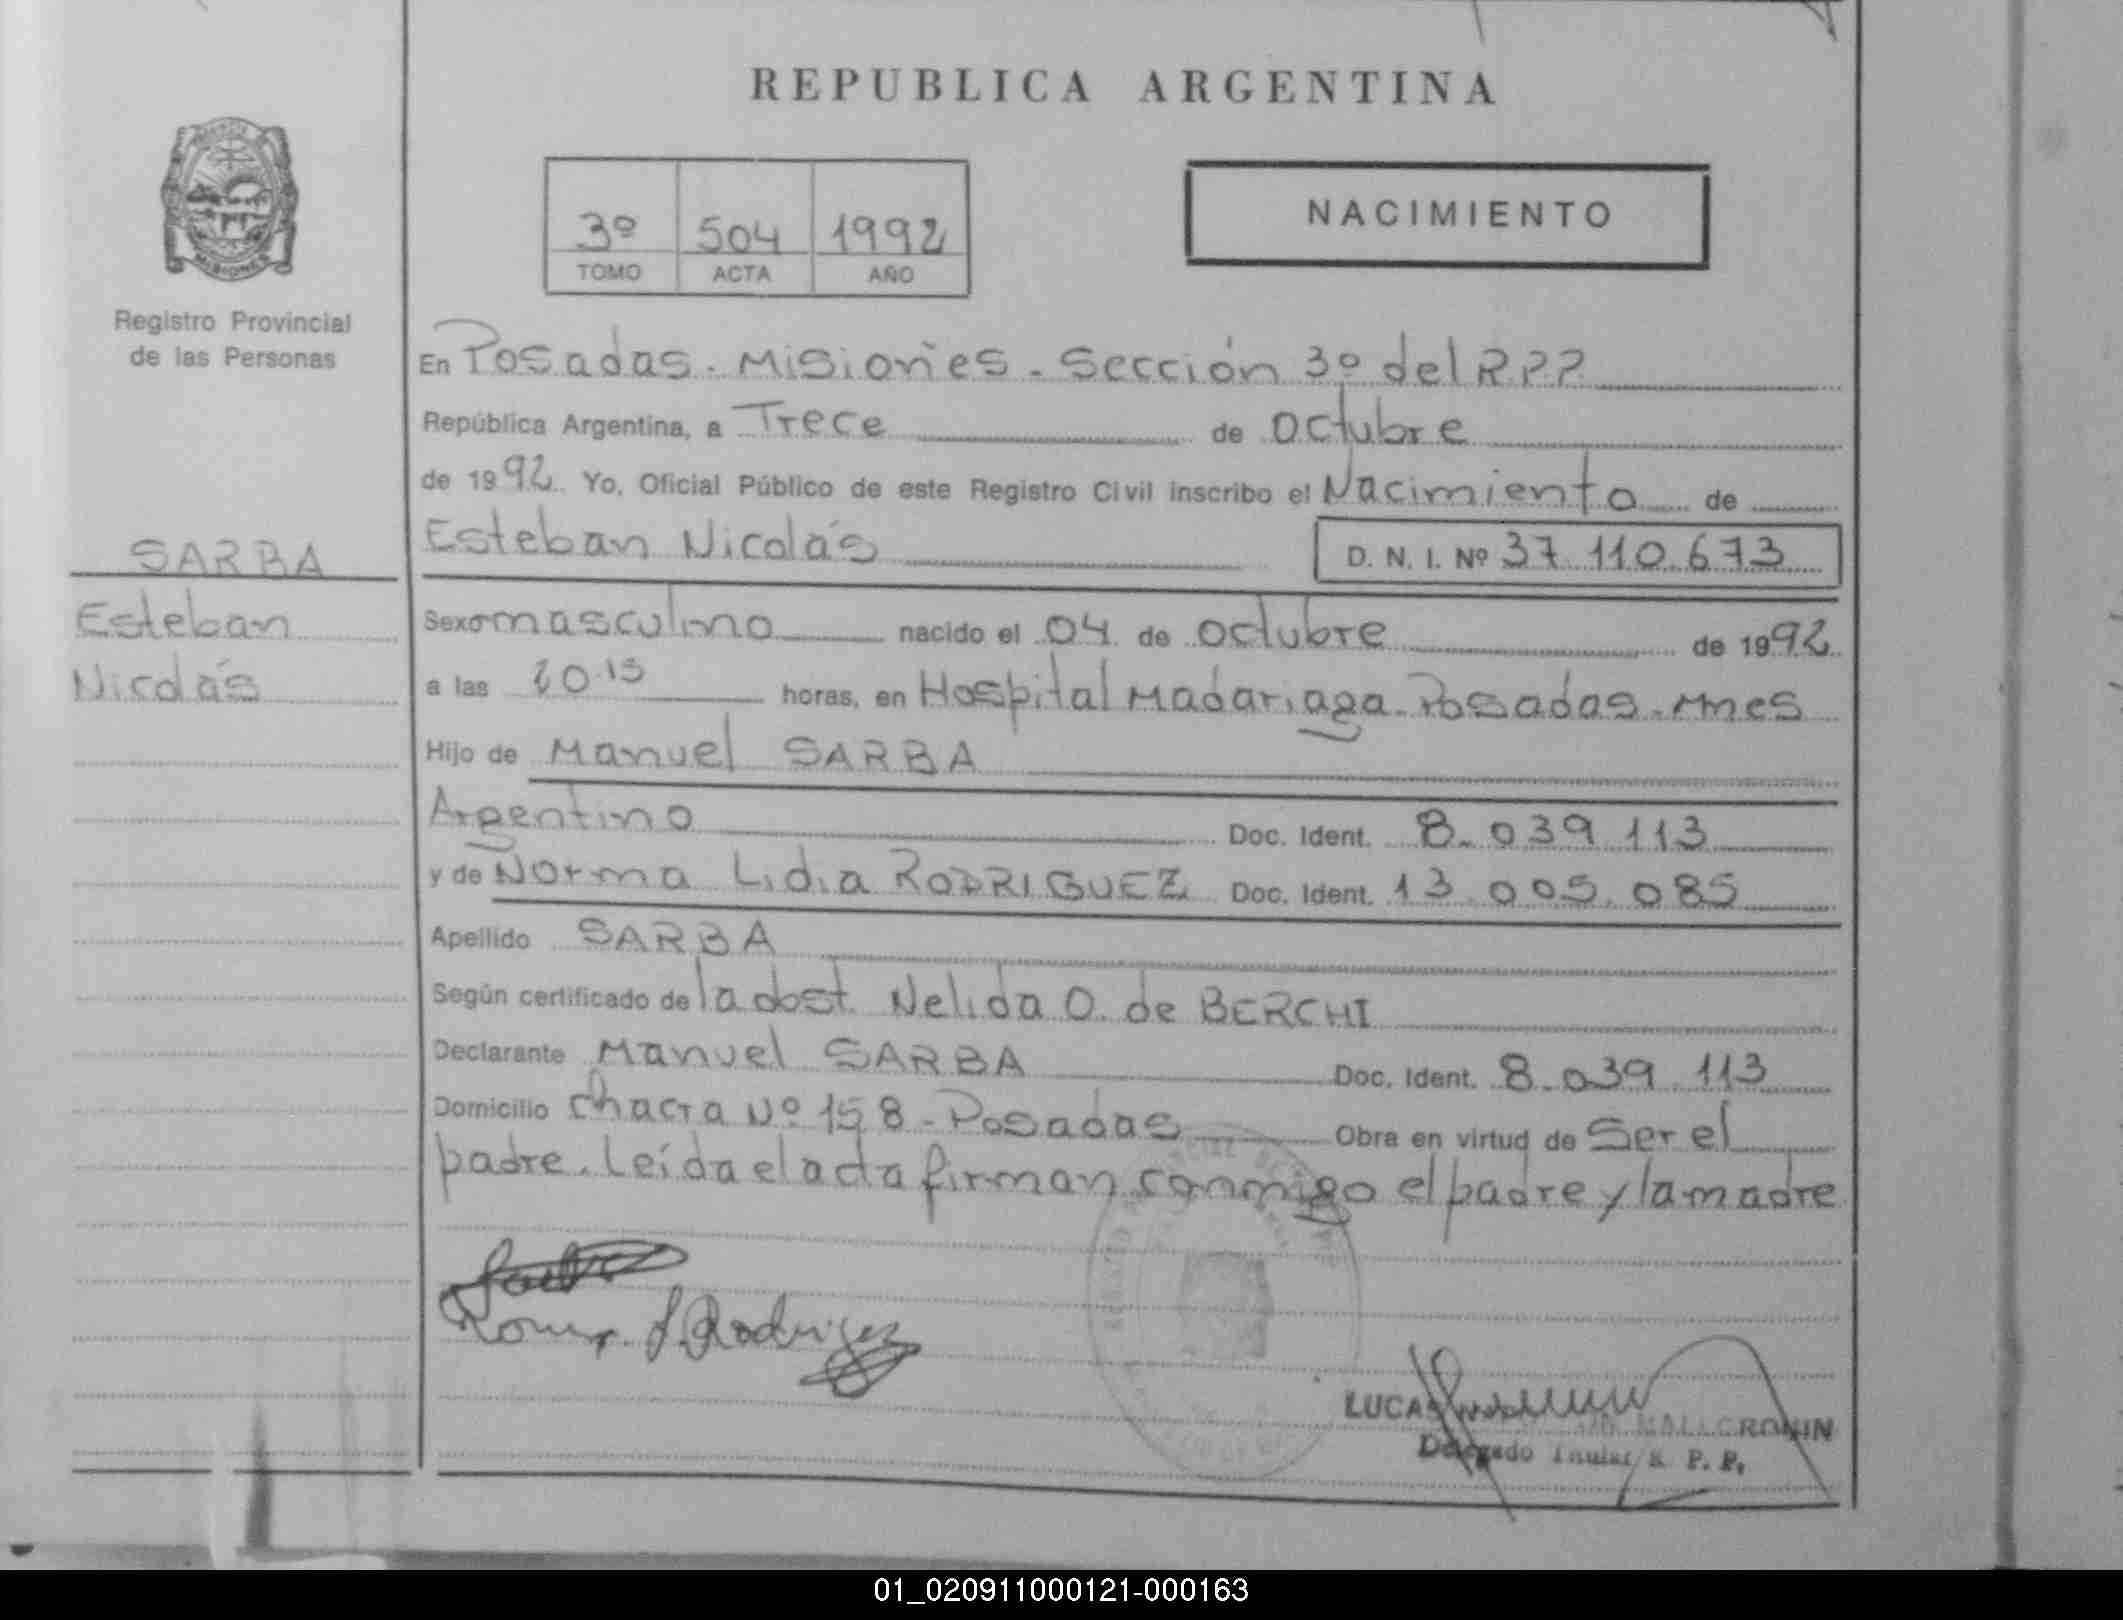 REPUBLICA ARGENTINA
MISIONES
3º 504 1992
TOMO ACTA AÑO
NACIMIENTO
Registro Provincial
de las Personas
En Posadas. Misiones. Sección 3º del R.P.P.
República Argentina, a Trece de Octubre
de 1992. Yo, Oficial Público de este Registro Civil inscribo el Nacimiento de
SARBA
Esteban Nicolás D. N. I. Nº 37.110.673
Esteban
Nicolás
Sexo masculino nacido el 04 de Octubre de 1992
a las 20.15 horas, en Hospital Madariaga. Posadas. Mnes
Hijo de Manuel SARBA
Argentino Doc. Ident. 8.039.113
y de Norma Lidia RODRIGUEZ Doc. Ident. 13.005.085
Apellido SARBA
Según certificado de la obst. Nelida O. de BERCHI
Declarante Manuel SARBA Doc. Ident. 8.039.113
Domicilio Chacra Nº 158 - Posadas Obra en virtud de Ser el
padre. Leída el acta firman conmigo el padre y la madre
L. Rodriguez
LUCAS
Delegado Titular R. P. P.
01_020911000121-000163